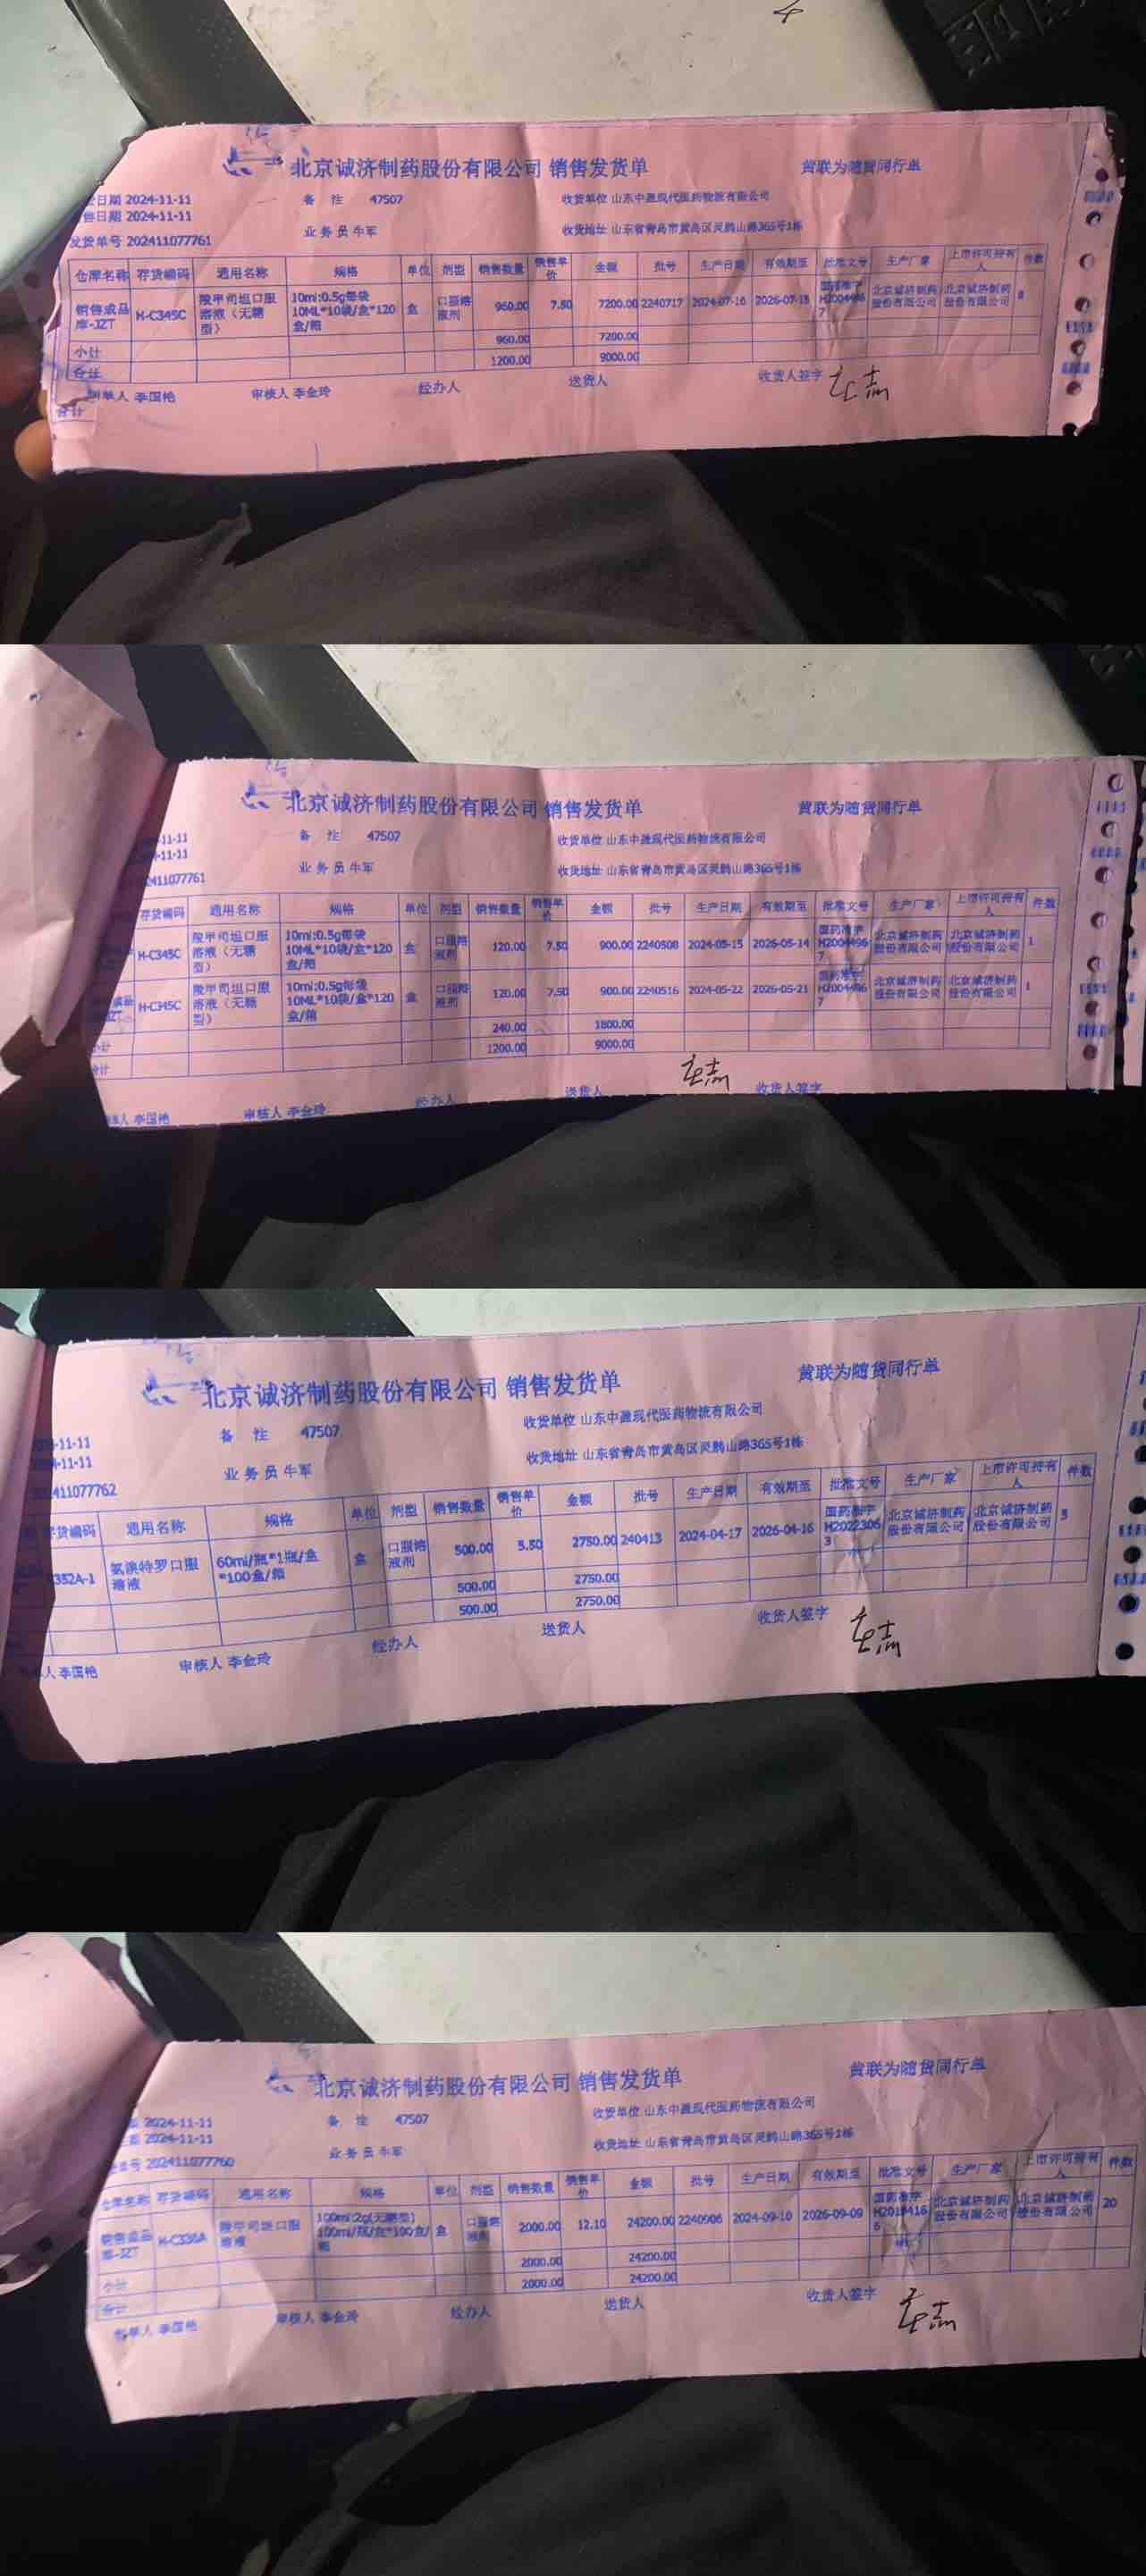 北京诚济制药股份有限公司 销售发货单 黄联为随货同行单
日期 2024-11-11 备 注 47507 收货单位 山东中盈现代医药物流有限公司
售日期 2024-11-11
业务员 牛军 收货地址 山东省青岛市黄岛区灵鹊山路365号1栋
发货单号 202411077761
仓库名称 存货编码 通用名称 规格 单位 剂型 销售数量 销售单价 金额 批号 生产日期 有效期至 批准文号 生产厂家 上市许可持有人 件数
销售成品库-JZT H-C345C 羧甲司坦口服溶液（无糖型） 10ml:0.5g每袋 10ML*10袋/盒*120盒/箱 盒 口服溶液剂 960.00 7.50 7200.00 2240717 2024-07-16 2026-07-15 北京诚济制药股份有限公司 北京诚济制药股份有限公司 8
小计 960.00 7200.00
合计 1200.00 9000.00
制单人 李国艳 审核人 李金玲 经办人 送货人 收货人签字
合计
北京诚济制药股份有限公司 销售发货单 黄联为随货同行单
-11-11 备 注 47507 收货单位 山东中盈现代医药物流有限公司
-11-11
业务员 牛军 收货地址 山东省青岛市黄岛区灵鹊山路365号1栋
2411077761
存货编码 通用名称 规格 单位 剂型 销售数量 销售单价 金额 批号 生产日期 有效期至 批准文号 生产厂家 上市许可持有人 件数
H-C345C 羧甲司坦口服溶液（无糖型） 10ml:0.5g每袋 10ML*10袋/盒*120盒/箱 盒 口服溶液剂 120.00 7.50 900.00 2240508 2024-05-15 2026-05-14 国药准字 北京诚济制药股份有限公司 北京诚济制药股份有限公司 1
成品 JZT H-C345C 羧甲司坦口服溶液（无糖型） 10ml:0.5g每袋 10ML*10袋/盒*120盒/箱 盒 口服溶液剂 120.00 7.50 900.00 2240516 2024-05-22 2026-05-21 北京诚济制药股份有限公司 北京诚济制药股份有限公司 1
小计 240.00 1800.00
合计 1200.00 9000.00
单人 李国艳 审核人 李金玲 经办人 送货人 收货人签字
北京诚济制药股份有限公司 销售发货单 黄联为随货同行单
-11-11 备 注 47507 收货单位 山东中盈现代医药物流有限公司
-11-11
业务员 牛军 收货地址 山东省青岛市黄岛区灵鹊山路365号1栋
411077762
存货编码 通用名称 规格 单位 剂型 销售数量 销售单价 金额 批号 生产日期 有效期至 批准文号 生产厂家 上市许可持有人 件数
352A-1 氨溴特罗口服溶液 60ml/瓶*1瓶/盒*100盒/箱 盒 口服溶液剂 500.00 5.50 2750.00 240413 2024-04-17 2026-04-16 国药准字H20223063 北京诚济制药股份有限公司 北京诚济制药股份有限公司 5
500.00 2750.00
500.00 2750.00
人 李国艳 审核人 李金玲 经办人 送货人 收货人签字
北京诚济制药股份有限公司 销售发货单 黄联为随货同行单
2024-11-11 备 注 47507 收货单位 山东中盈现代医药物流有限公司
2024-11-11
业务员 牛军 收货地址 山东省青岛市黄岛区灵鹊山路365号1栋
单号 202411077760
仓库名称 存货编码 通用名称 规格 单位 剂型 销售数量 销售单价 金额 批号 生产日期 有效期至 批准文号 生产厂家 上市许可持有人 件数
销售成品库-JZT H-C336A 羧甲司坦口服溶液 100ml:2g(无糖型) 100ml/瓶/盒*100盒/箱 盒 口服溶液剂 2000.00 12.10 24200.00 2240906 2024-09-10 2026-09-09 国药准字 北京诚济制药股份有限公司 北京诚济制药股份有限公司 20
小计 2000.00 24200.00
合计 2000.00 24200.00
制单人 李国艳 审核人 李金玲 经办人 送货人 收货人签字